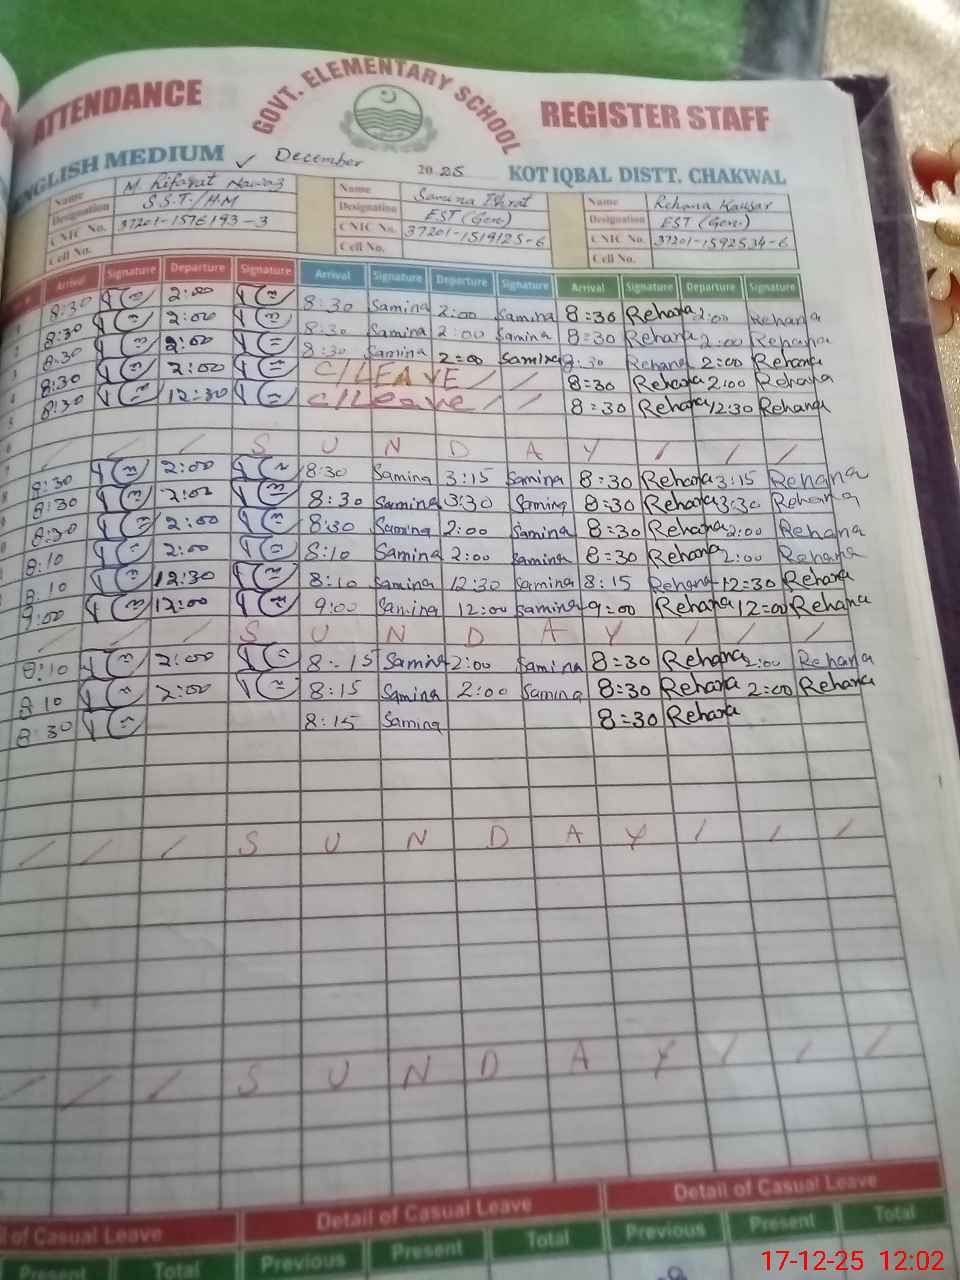 ATTENDANCE GOVT. ELEMENTARY SCHOOL REGISTER STAFF
ENGLISH MEDIUM ✓ December 2025 KOT IQBAL DISTT. CHAKWAL
Name M. Rifaqat Nawaz Name Samina Name Rehana Kausar
Designation S.S.T./H.M Designation EST (Gen) Designation EST (Gen.)
CNIC No. 37201-1576193-3 CNIC No. 37201-1519125-6 CNIC No. 37201-1592534-6
Cell No. Cell No. Cell No.
Arrival Signature Departure Signature Arrival Signature Departure Signature Arrival Signature Departure Signature
8:30 2:00 8:30 Samina 2:00 Samina 8=30 Rehana 2:00 Rehana
8:30 2:00 8:30 Samina 2:00 Samina 8=30 Rehana 2:00 Rehana
8:30 2:00 8:30 Samina 2=00 Samina 8:30 Rehana 2:00 Rehana
8:30 2:00 C/LEAVE / / 8=30 Rehana 2:00 Rehana
8:30 12:30 C/Leave / / 8=30 Rehana 12:30 Rehana
/ / / S U N D A Y / / /
8:30 2:00 8:30 Samina 3:15 Samina 8=30 Rehana 3:15 Rehana
8:30 2:00 8:30 Samina 3:30 Samina 8=30 Rehana 3:30 Rehana
8:30 2:00 8:30 Samina 2:00 Samina 8=30 Rehana 2:00 Rehana
8:10 2:00 8:10 Samina 2:00 Samina 8=30 Rehana 2:00 Rehana
8:10 12:30 8:10 Samina 12:30 Samina 8:15 Rehana 12=30 Rehana
9:00 12:00 9:00 Samina 12:00 Samina 9=00 Rehana 12=00 Rehana
/ / / S U N D A Y / / /
8:10 2:00 8:15 Samina 2:00 Samina 8=30 Rehana 2:00 Rehana
8:10 2:00 8:15 Samina 2:00 Samina 8=30 Rehana 2=00 Rehana
8:30 8:15 Samina 8=30 Rehana
/ / / S U N D A Y / / /
/ / / S U N D A Y / / /
of Casual Leave Detail of Casual Leave Detail of Casual Leave
Present Total Previous Present Total Previous Present Total
17-12-25 12:02